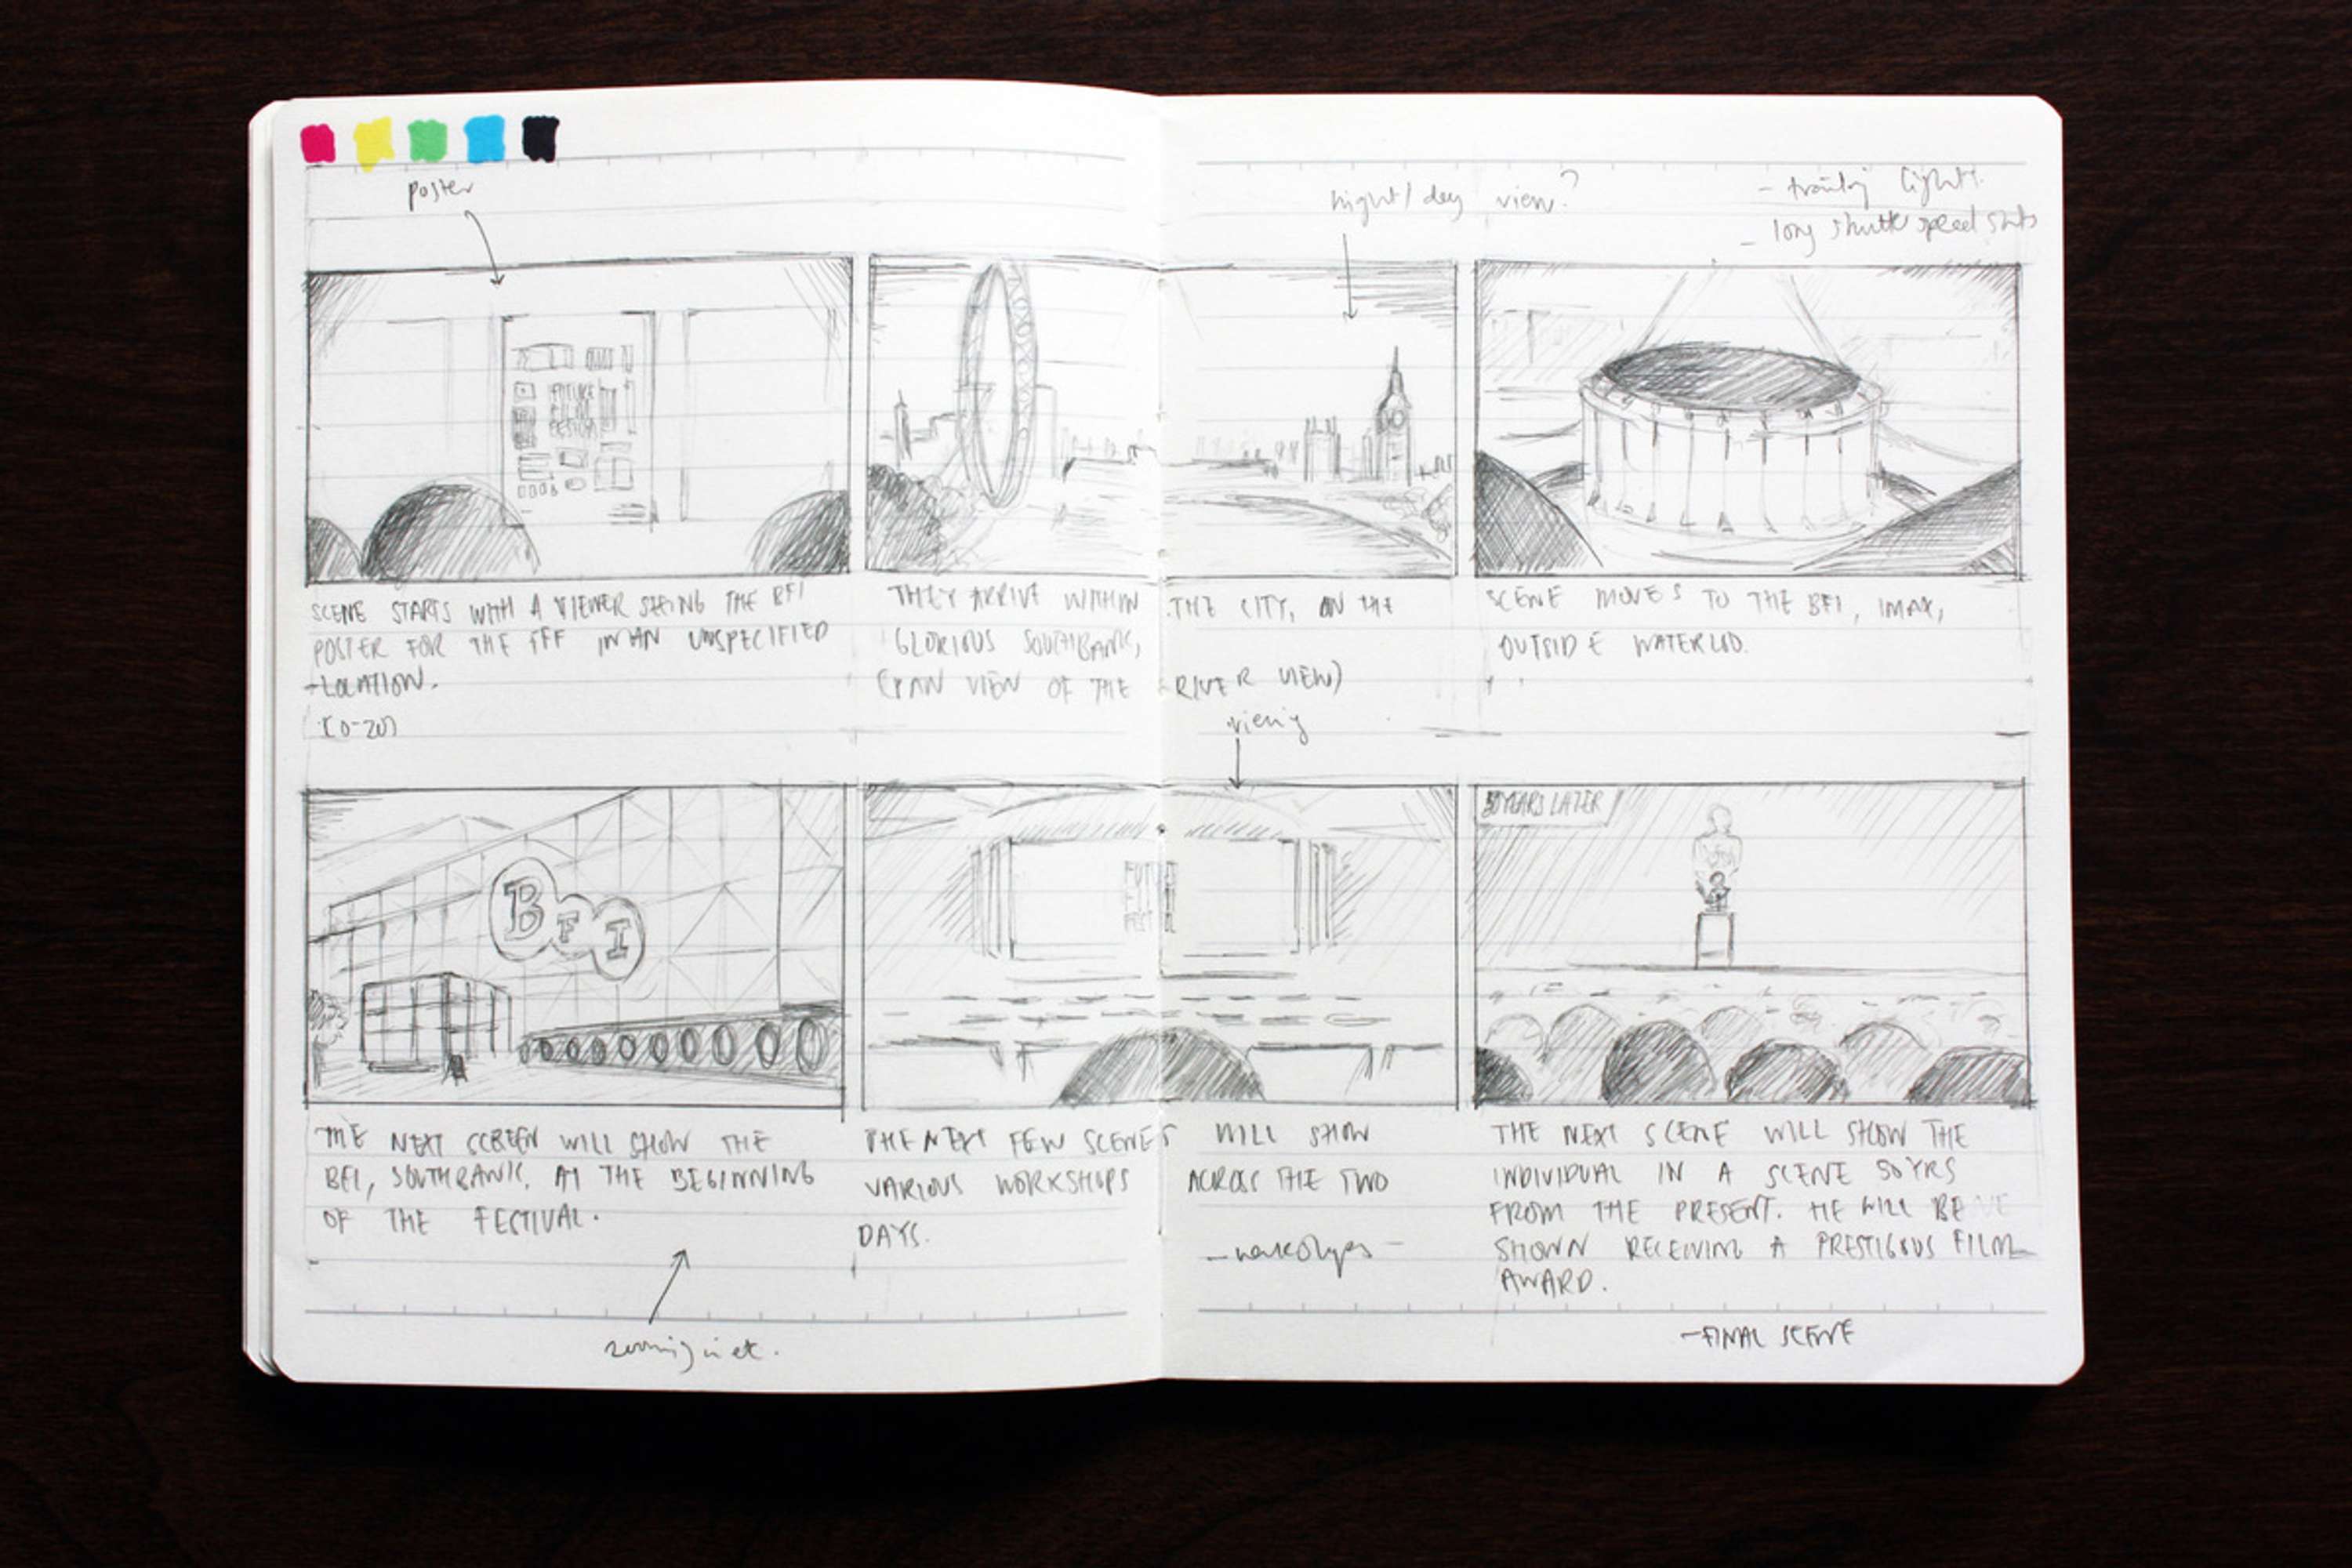 poster
night/day view?
- trailing lights.
- long shutter speed shots
FUTURE
FILM
FESTIVAL
SCENE STARTS WITH A VIEWER SEEING THE BFI
POSTER FOR THE FFF IN AN UNSPECIFIED
LOCATION.
(0-20)
THEY ARRIVE WITHIN THE CITY, ON THE
GLORIOUS SOUTHBANK,
(PAN VIEW OF THE RIVER VIEW)
SCENE MOVES TO THE BFI, IMAX,
OUTSIDE WATERLOO.
viewing
BFI
50 YEARS LATER
THE NEXT SCREEN WILL SHOW THE
BFI, SOUTHBANK, AT THE BEGINNING
OF THE FESTIVAL.
THE NEXT FEW SCENES WILL SHOW
VARIOUS WORKSHOPS ACROSS THE TWO
DAYS.
- workshops -
THE NEXT SCENE WILL SHOW THE
INDIVIDUAL IN A SCENE 50 YRS
FROM THE PRESENT. HE WILL BE
SHOWN RECEIVING A PRESTIGOUS FILM
AWARD.
- FINAL SCENE